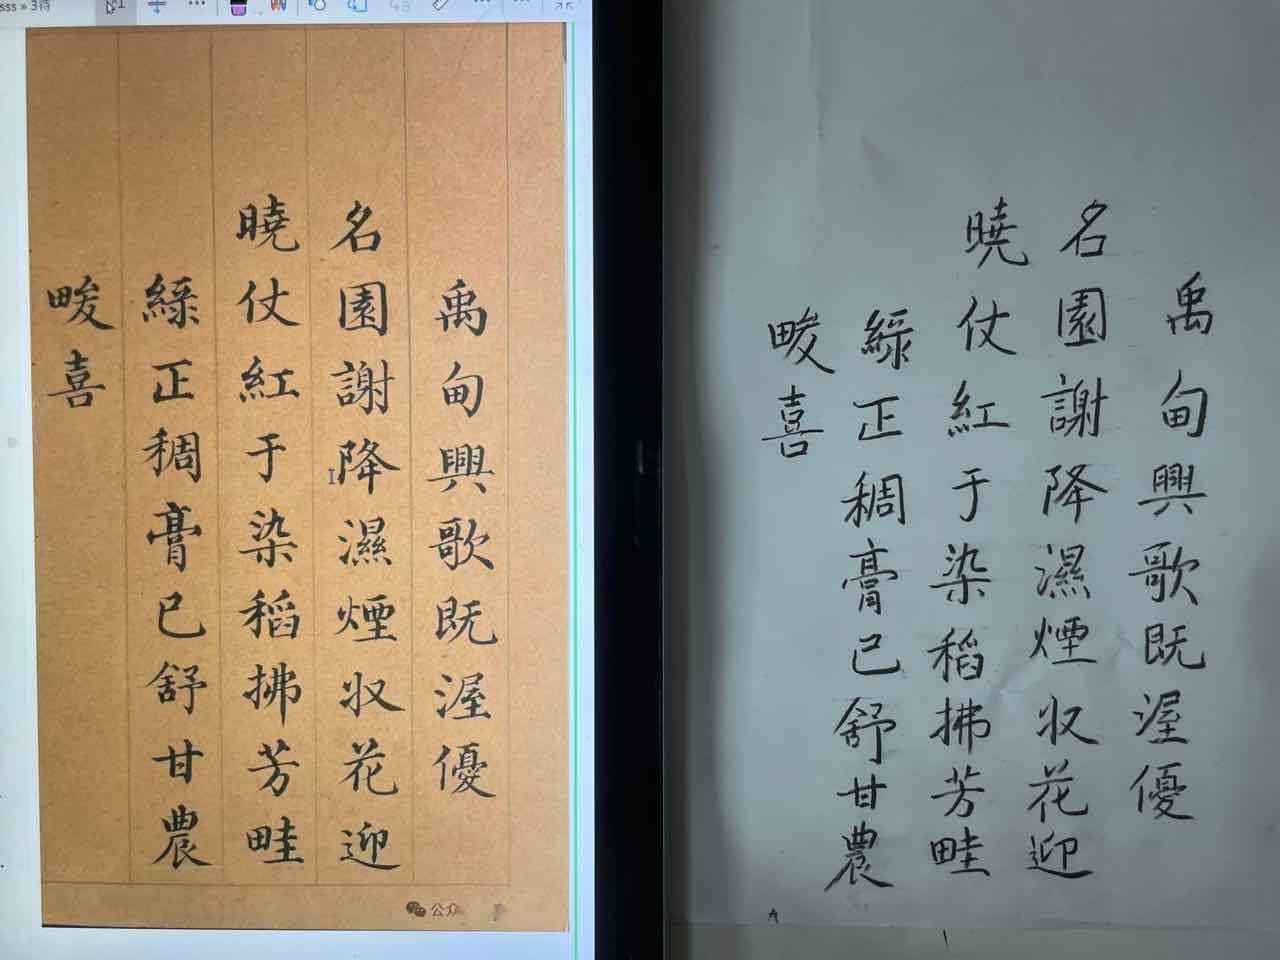 sss » 3待
禹甸興歌既渥優
名園謝降濕煙収花迎
曉仗紅于染稻拂芳畦
綠正稠膏已舒甘農
畯喜
公众
禹甸興歌既渥優
名園謝降濕煙収花迎
曉仗紅于染稻拂芳畦
綠正稠膏已舒甘農
畯喜